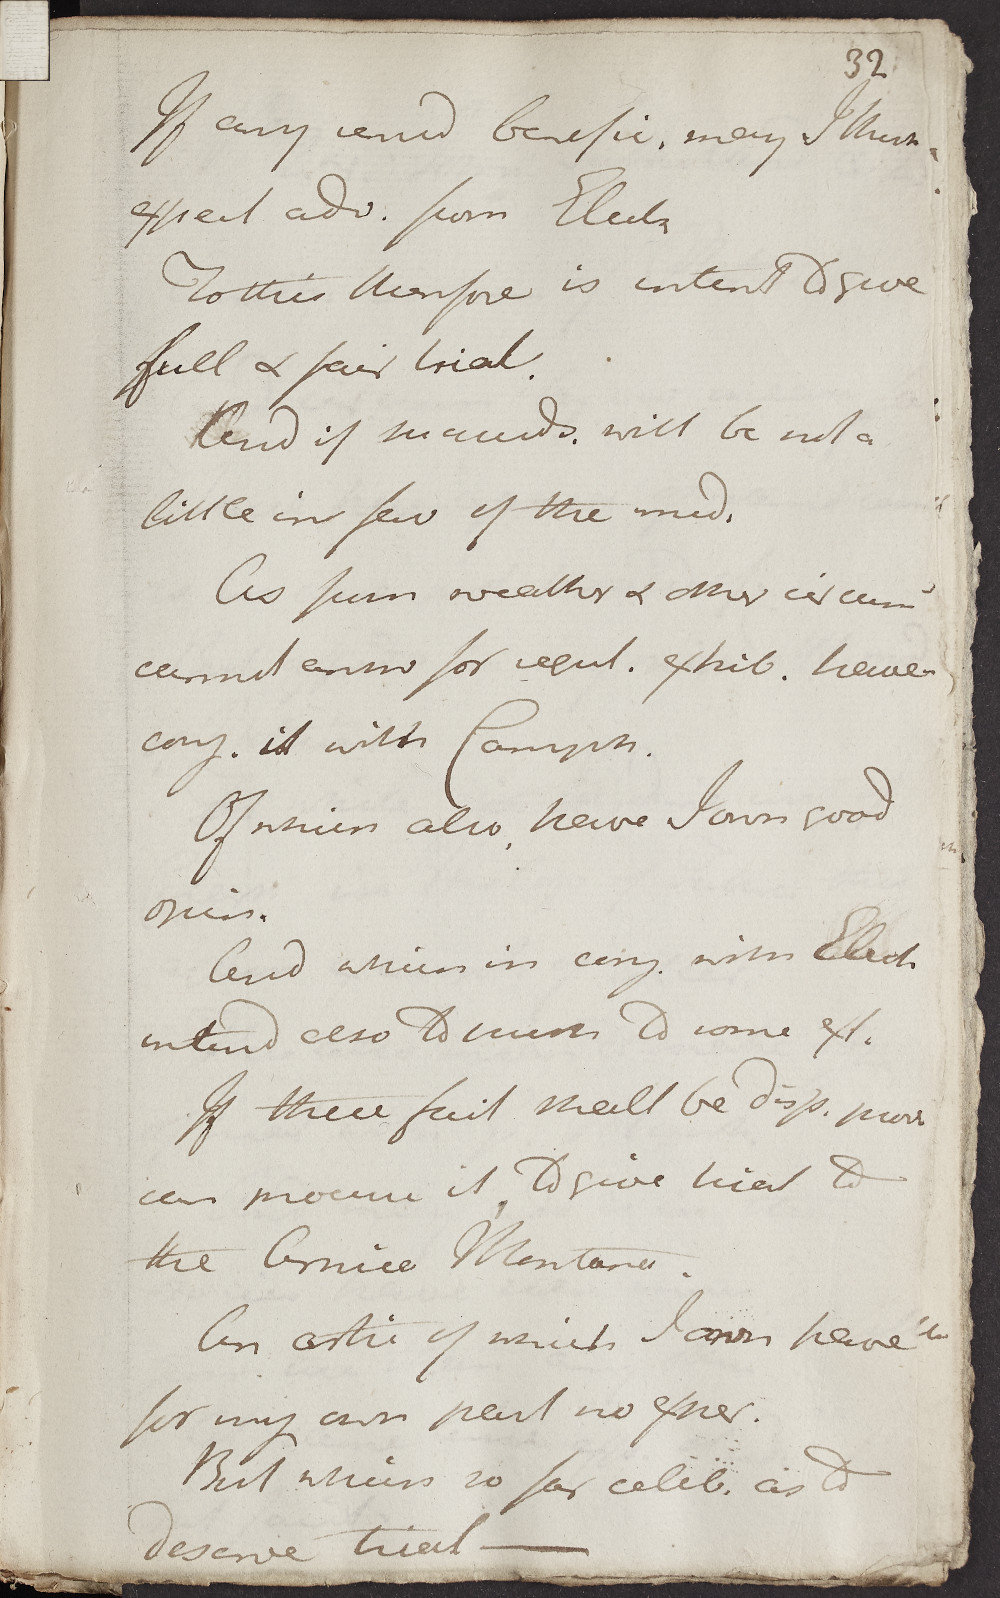 32
If any remd benefic. may I think
expect adv. from Elect.
To this therefore is intent to give
full & fair trial.
And if succeeds. will be not a
little in fav of the med.
As from weather & other circum
cannot answ for regul. exhib. have
conj. it with Camph.
Of which also, have I own good
opin.
And which in conj. with Elect
intend also to push to some ext.
If these fail shall be disp. provd
can procure it, to give trial to
the Arnica Montana.
An artic of which I own have
for my own part no exper.
But which so far celeb. as to
deserve trial —